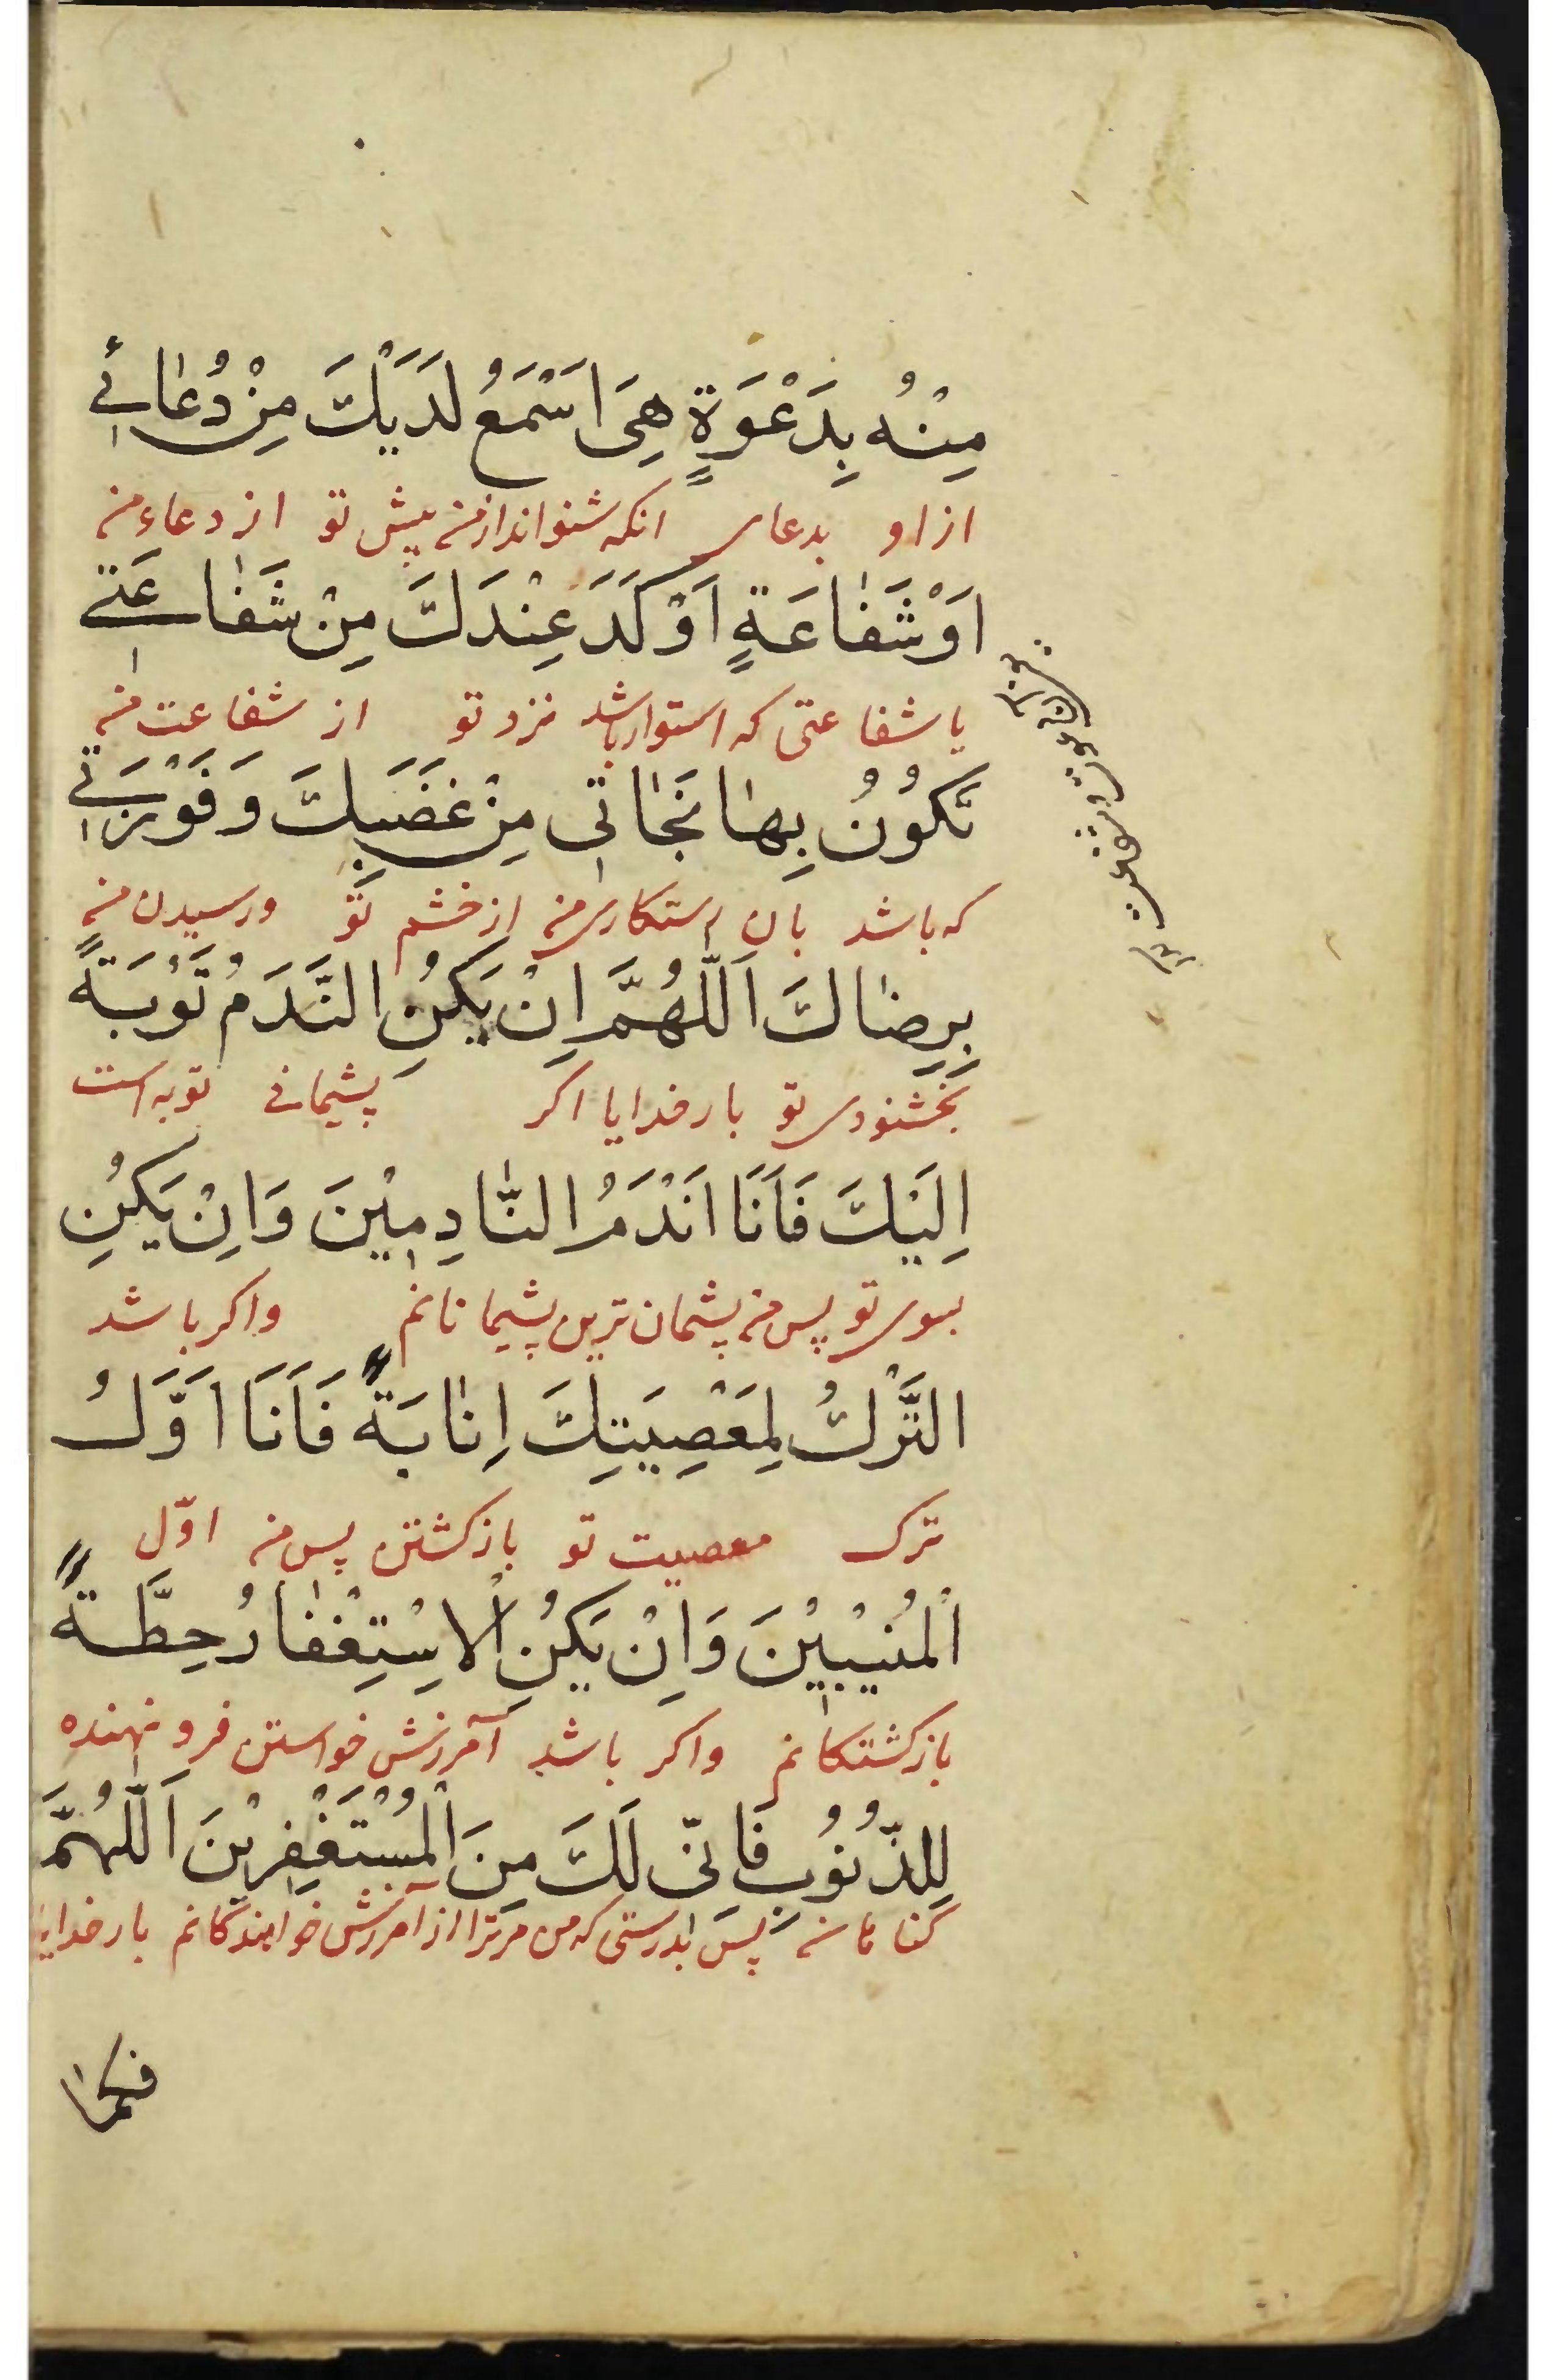 مِنْهُ بِدَعْوَةٍ هِيَ اَسْمَعُ لَدَيْكَ مِنْ دُعٰائي
از او بدعای انکه شنوانداز منه پیش تو از دعاء منه
اَوْ شَفٰاعَةٍ اَوْكَدَ عِنْدَكَ مِنْ شَفٰاعَتي
یا شفاعتی که استوار باشد نزد تو از شفاعت منه
تَكُونُ بِهٰا نَجٰاتي مِنْ غَضَبِكَ وَ فَوْزَتي
که باشد بان رستکاری منه از خشم تو ورسیدن منه
بِرِضٰاكَ اَللّٰهُمَّ اِنْ يَكُنِ النَّدَمُ تَوْبَةً
بخشنودی تو بار خدایا اکر پشیمانی توبه است
اِلَيْكَ فَاَنَا اَنْدَمُ النّٰادِمِيْنَ وَاِنْ يَكُنِ
بسوی تو پس منه پشمان ترین پشیمانانم واکر باشد
التَّرْكُ لِمَعْصِيَتِكَ اِنٰابَةً فَاَنَا اَوَّلُ
ترک معصیت تو بازکشتن پس منه اوّل
الْمُنيْبِيْنَ وَاِنْ يَكُنِ الْاِسْتِغْفٰارُ حِطَّةً
بازکشتکانم واکر باشد آمرزش خواستن فرو نهنده
لِلذُّنُوبِ فَاِنّي لَكَ مِنَ الْمُسْتَغْفِرِيْنَ اَللّٰهُمَّ
کناهانه پس بدرستی که من مرترا از آمرزش خواهندکانم بار خدایا
فكما